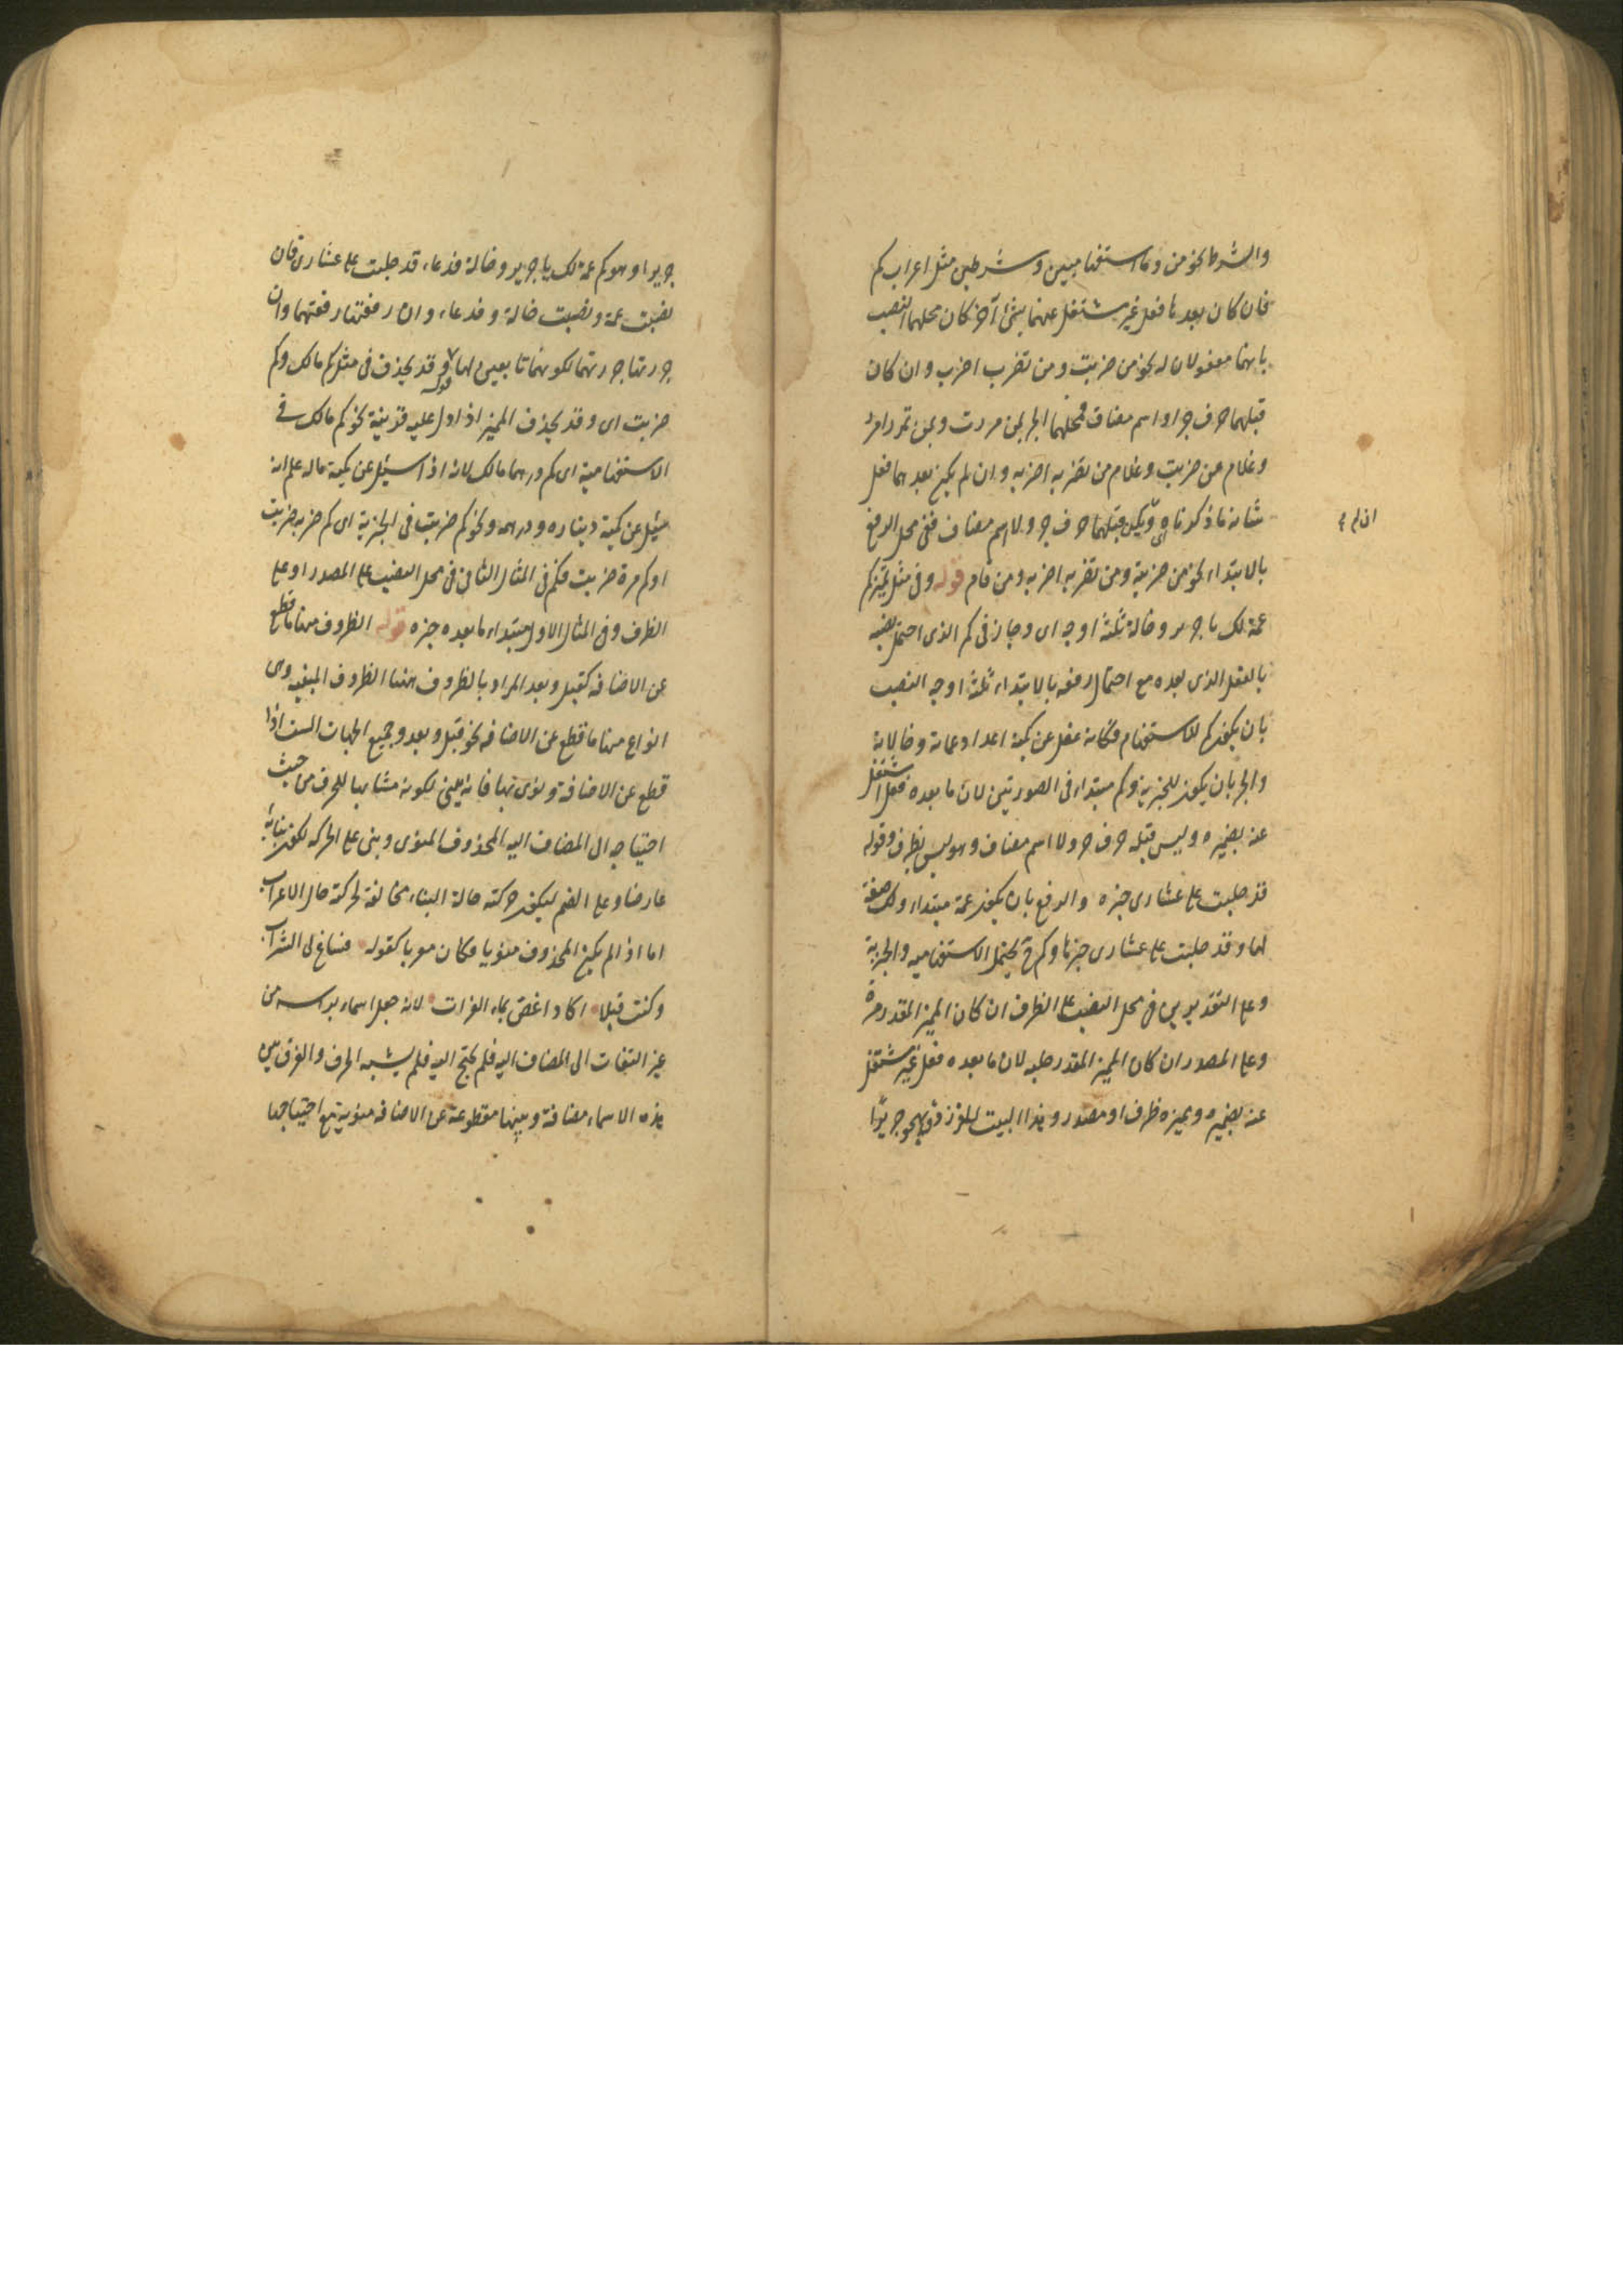 والشرط نحو من وما استفهاميتين وشرطين مثل اعراب كم
فان كان بعدها فعل غير مشتغل عنهما بشئ آخر كان محلهما النصب
بانهما مفعولان له نحو من ضربت ومن تضرب اضرب وان كان
قبلهما حرف جر او اسم مضاف فمحلهما الجر بمن مررت وبمن تمرر امرر
وغلام من ضربت وغلام من تضربه اضربه وان لم يكن بعدهما فعل
شانه ما ذكرناه ويكن قبلهما حرف جر ولا اسم مضاف ففي محل الرفع
بالابتداء نحو من ضربته ومن تضربه اضربه ومن قام قوله وفي مثل تميز كم
عمة لك يا جرير وخالة ثلثة اوجه اى وجاز فى كم الذى احتمل نصبه
بالفعل الذى بعده مع احتمال رفعه بالابتداء ثلثة اوجه النصب
بان يكون كم للاستفهام فكانه غفل عن كمية اعداد عماته وخالاته
والجر بان يكون للخبرية وكم مبتداء فى الصورتين لان ما بعده فعل اشتغل
عنه بضميره وليس قبله حرف جر ولا اسم مضاف وهو ليس بظرف وقوله
قد حلبت على عشارى خبره والرفع بان يكون عمة مبتداء ولك صفة
لها وقد حلبت على عشارى خبرها وكم ح يحتمل الاستفهاميه والخبرية
وعلى التقديرين فى محل النصب على الظرف ان كان المميز المقدر مرة
وعلى المصدر ان كان المميز المقدر حلبه لان ما بعده فعل غير مشتغل
عنه بضميره ومميزه ظرف او مصدر وهذا البيت للفرزدق يهجو جريرا
ان لم
جريرا وهو كم عمة لك يا جرير وخالة فدعاء قد حلبت على عشارى فان
نصبت عمة ونصبت خالة وفدعاء وان رفعتها رفعتهما وان
جررتها جررتهما لكونهما تابعين لها قوله وقد يحذف فى مثل كم مالك وكم
ضربت اى وقد يحذف المميز اذا دل عليه قرينة نحو كم مالك فى
الاستفهامية اى كم درهما مالك لانه اذا سئل عن كمية ماله علم انه
سئل عن كمية ديناره ودرهمه ونحو كم ضربت فى الخبرية اى كم ضربه ضربت
او كم مرة ضربت فكم فى المثال الثانى فى محل النصب على المصدر او على
الظرف وفى المثال الاول مبتداء ما بعده خبره قوله الظروف منها ما قطع
عن الاضافه كقبل وبعد المراد بالظروف ههنا الظروف المبنيه وهى
انواع منها ما قطع عن الاضافه نحو قبل وبعد وجميع الجهات الست اذا
قطع عن الاضافة ونوى بها فانه يبنى لكونه مشابها للحرف من حيث
احتياجه الى المضاف اليه المحذوف المنوى وبنى على الحركه لكون بنائه
عارضا وعلى الضم ليكون حركته حالة البناء مخالفة لحركة حال الاعراب
اما اذا لم يكن المحذوف منويا فكان معربا كقوله فساغ لى الشراب
وكنت قبلا اكاد اغص بماء الفرات لانه جعل اسماء براسه من
غير التفات الى المضاف اليه فلم يحتج اليه فلم يشبه الحرف والفرق بين
هذه الاسماء مضافة وبينها مقطوعة عن الاضافه منوية مع احتياجها